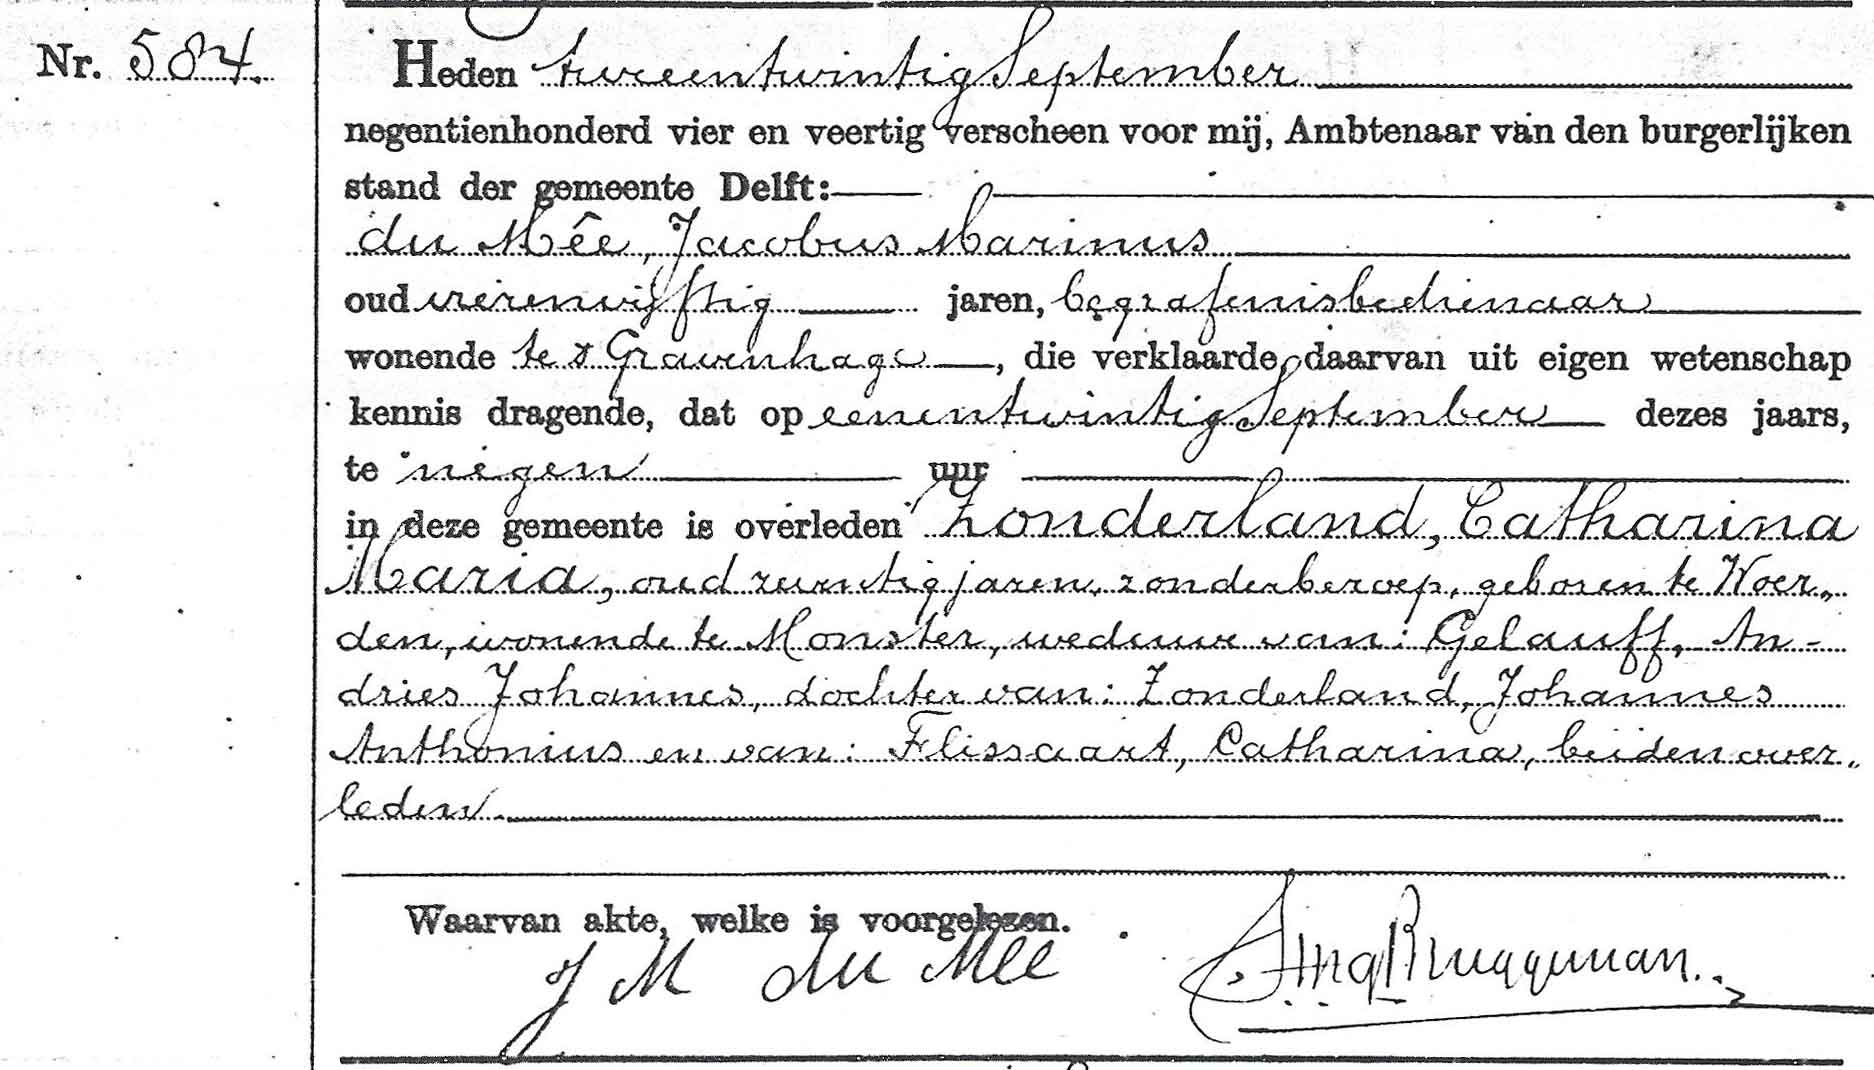 Nr. 584.
Heden tweeentwintig September
negentienhonderd vier en veertig verscheen voor mij, Ambtenaar van den burgerlijken
stand der gemeente Delft:
du Mêe, Jacobus Marinus
oud vierenvijftig jaren, begrafenisbedienaar
wonende te s Gravenhage, die verklaarde, daarvan uit eigen wetenschap
kennis dragende, dat op eenentwintig September dezes jaars,
te negen uur
in deze gemeente is overleden Zonderland, Catharina
Maria, oud zeventig jaren, zonder beroep, geboren te Woer„
den, wonende te Monster, weduwe van: Gelauff, An-
dries Johannes, dochter van: Zonderland, Johannes
Anthonius en van: Flissaart, Catharina, beiden over„
leden.
Waarvan akte, welke is voorgelezen.
J M du Mee
Bruggeman